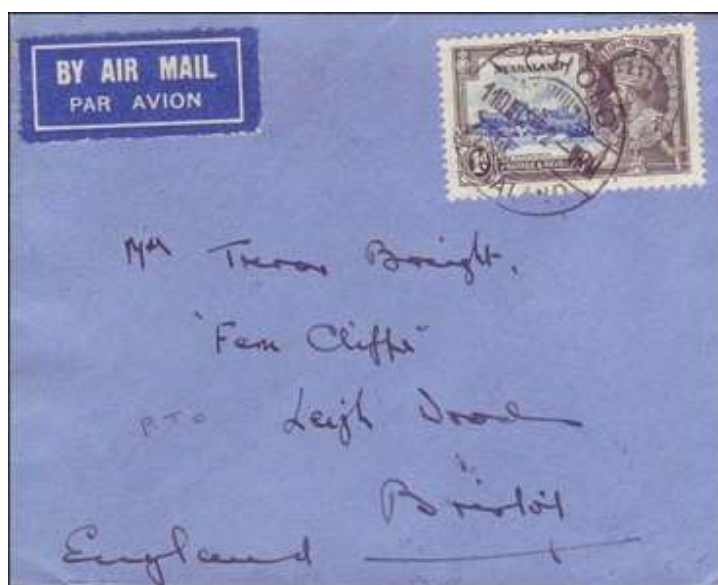 BY AIR MAIL
PAR AVION
NYASALAND
1910-1935
Mrs Trevor Bright,
"Fern Cliffe"
P.T.O
Leigh Woods
Bristol
England